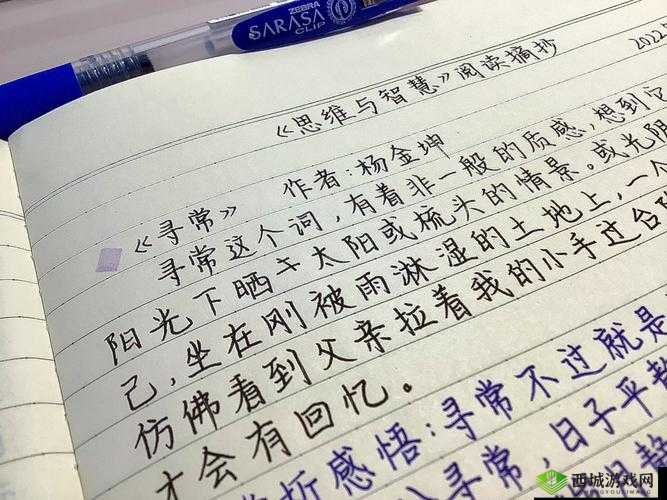 ZEBRA
SARASA
CLIP
《思维与智慧》阅读摘抄
2022
《寻常》 作者：杨金坤
寻常这个词，有着非一般的质感，想到它
阳光下晒午太阳或梳头的情景。或光阴
己，坐在刚被雨淋湿的土地上，一个
仿佛看到父亲拉着我的小手过台阶
才会有回忆。
赏析感悟：寻常不过就是
寻常，日子平静
西城游戏网